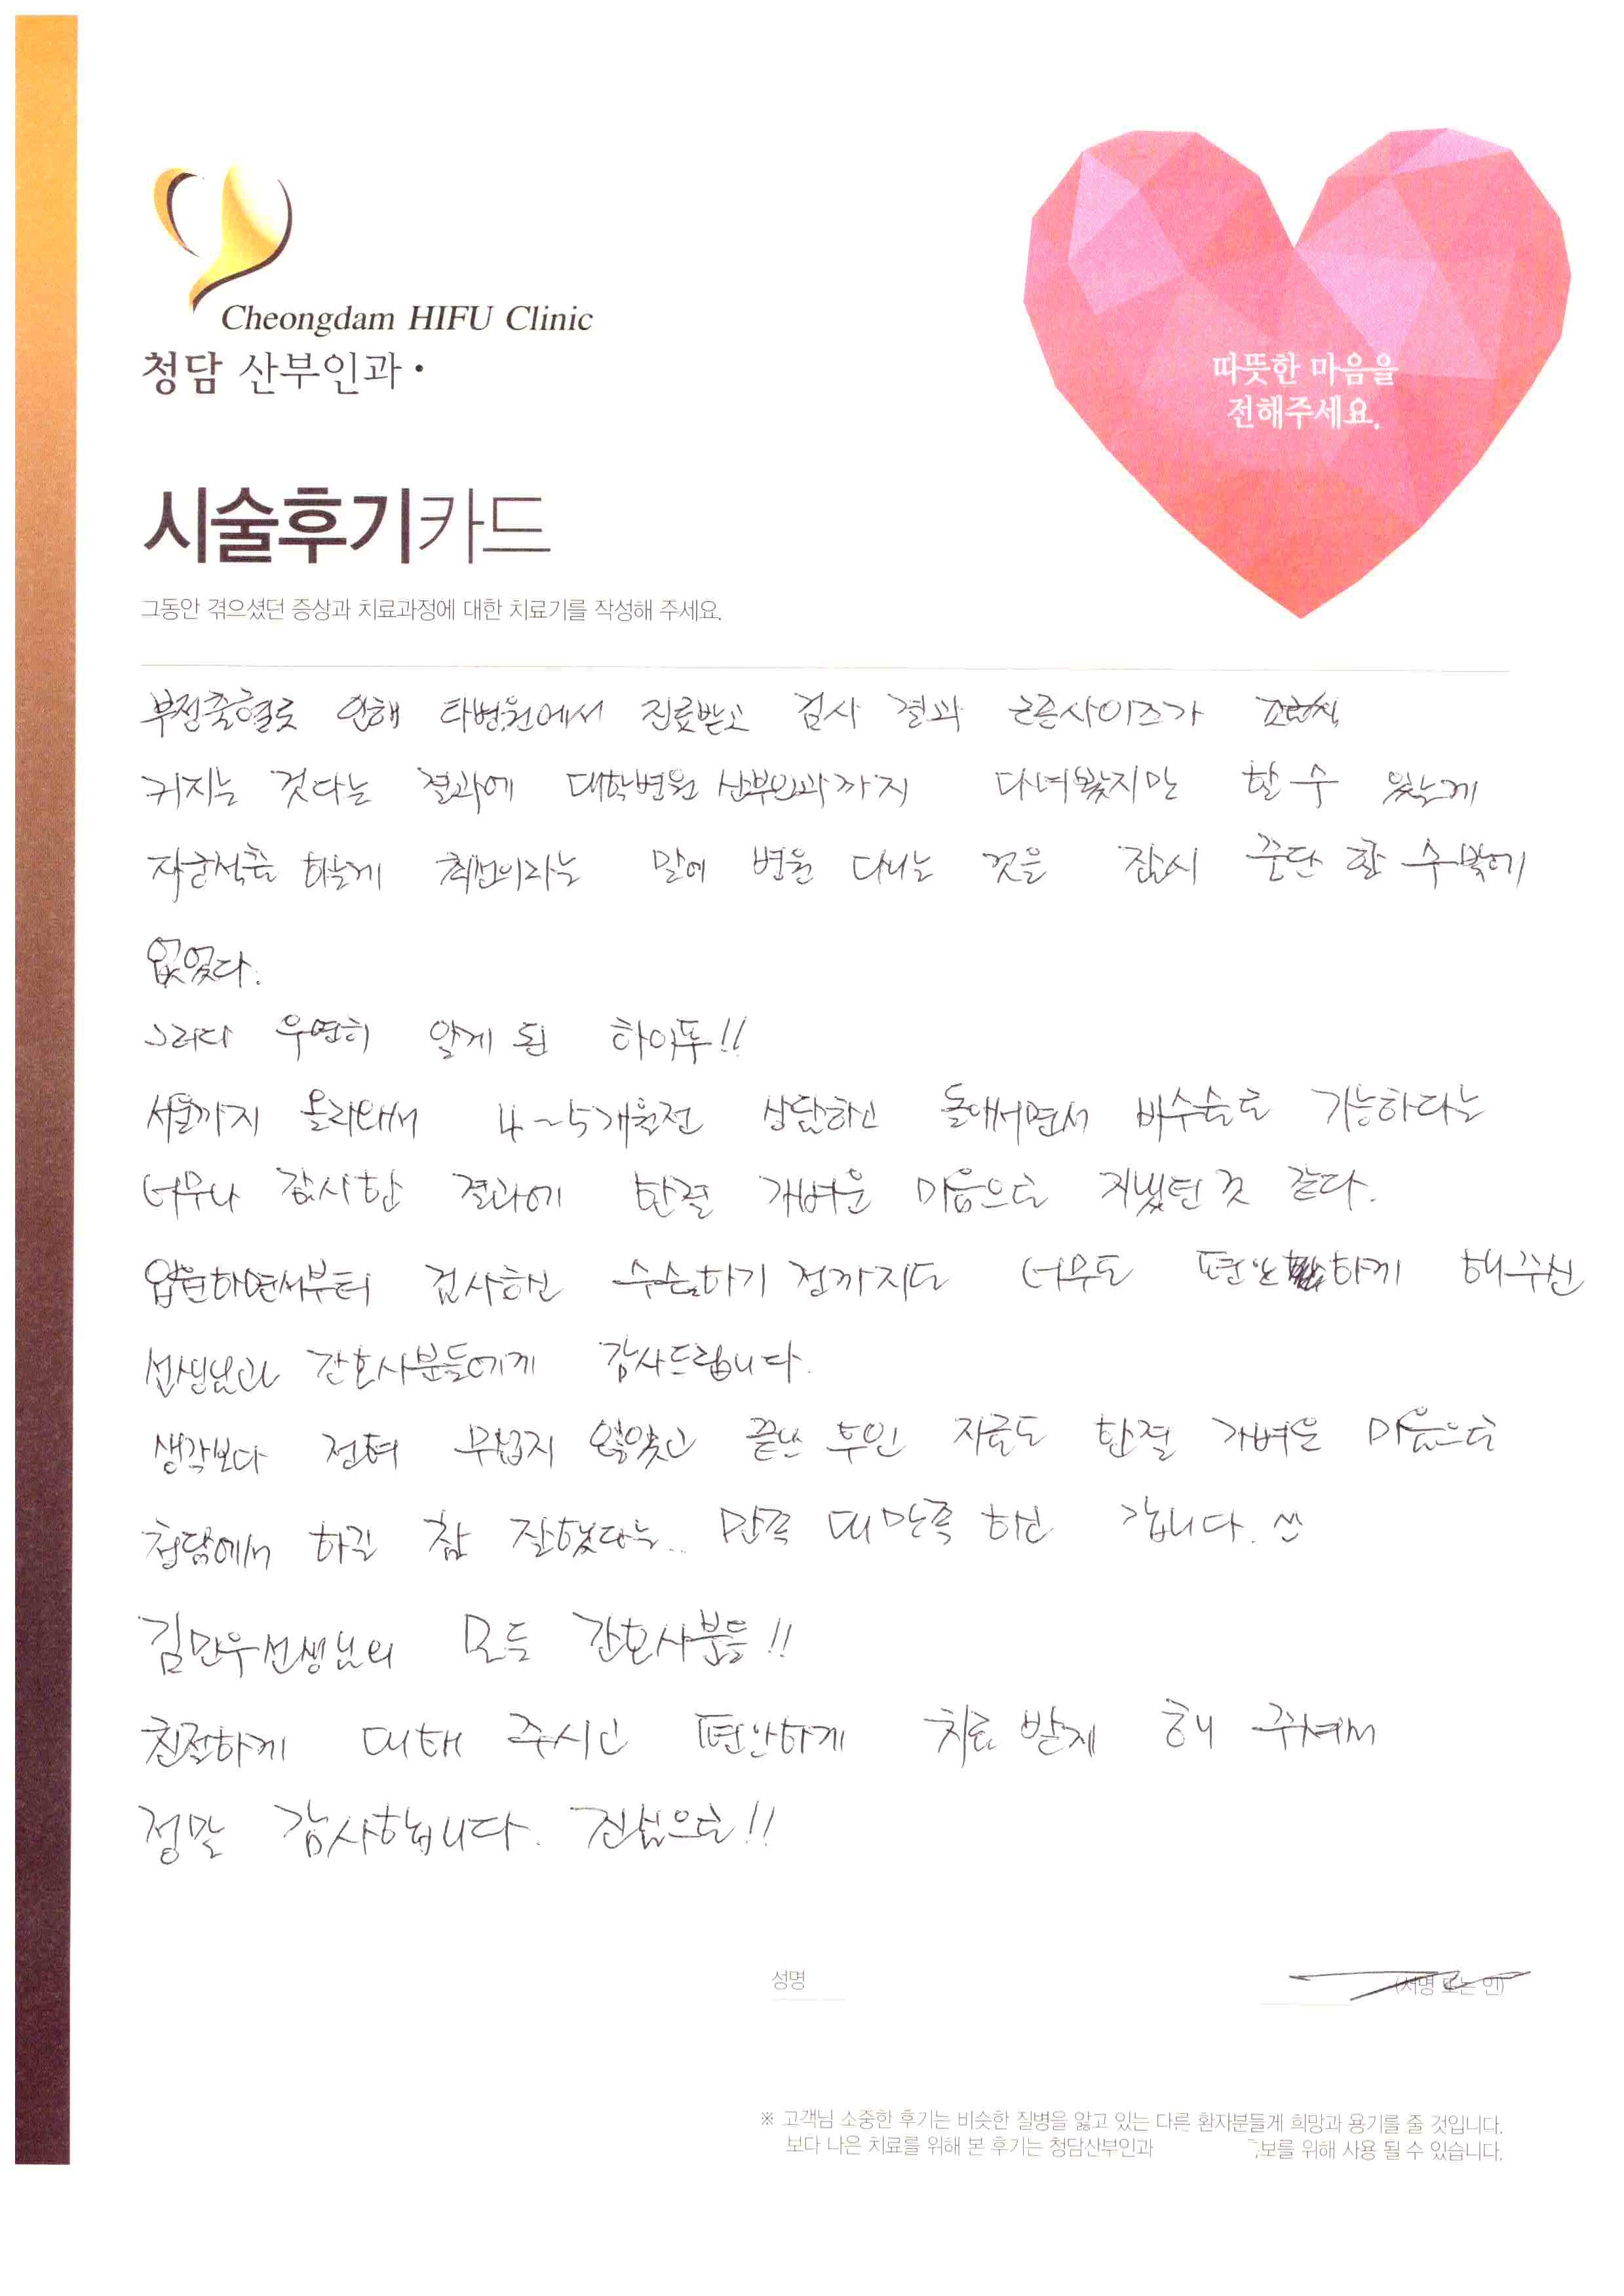 Cheongdam HIFU Clinic
청담 산부인과
따뜻한 마음을
전해주세요.
시술후기카드
그동안 겪으셨던 증상과 치료과정에 대한 치료기를 작성해 주세요.
부정출혈로 인해 타병원에서 진료받고 검사 결과 근종사이즈가 조금씩
커지는 것다는 결과에 대학병원 산부인과까지 다녀봤지만 할 수 있는게
자궁적출 하는게 최선이라는 말에 병원 다니는 것을 잠시 중단 할 수밖에
없었다.
그러다 우연히 알게 된 하이푸!!
서울까지 올라와서 4~5개월전 상담하고 돌아서면서 비수술로 가능하다는
너무나 감사한 결과에 한결 가벼운 마음으로 지냈던 것 같다.
입원하면서부터 검사하고 수술하기 전까지도 너무도 편안하게 해주신
선생님과 간호사분들에게 감사드립니다.
생각보다 전혀 무섭지 않았고 끝난 후인 지금도 한결 가벼운 마음으로
청담에서 하길 참 잘했다는.. 만족 대만족 하고 갑니다. ^^
김민우선생님외 모든 간호사분들!!
친절하게 대해 주시고 편안하게 치료 받게 해 주셔서
정말 감사합니다. 진심으로!!
성명 (서명 또는 인)
※ 고객님 소중한 후기는 비슷한 질병을 앓고 있는 다른 환자분들게 희망과 용기를 줄 것입니다.
보다 나은 치료를 위해 본 후기는 청담산부인과 보를 위해 사용 될 수 있습니다.